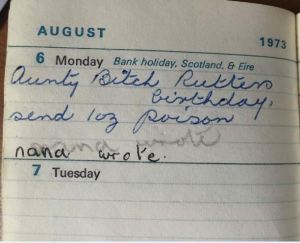 AUGUST
1973
6 Monday Bank holiday, Scotland, & Eire
Aunty Bitch Rutters
birthday,
send 1oz poison
nana wrote
nana wrote.
7 Tuesday